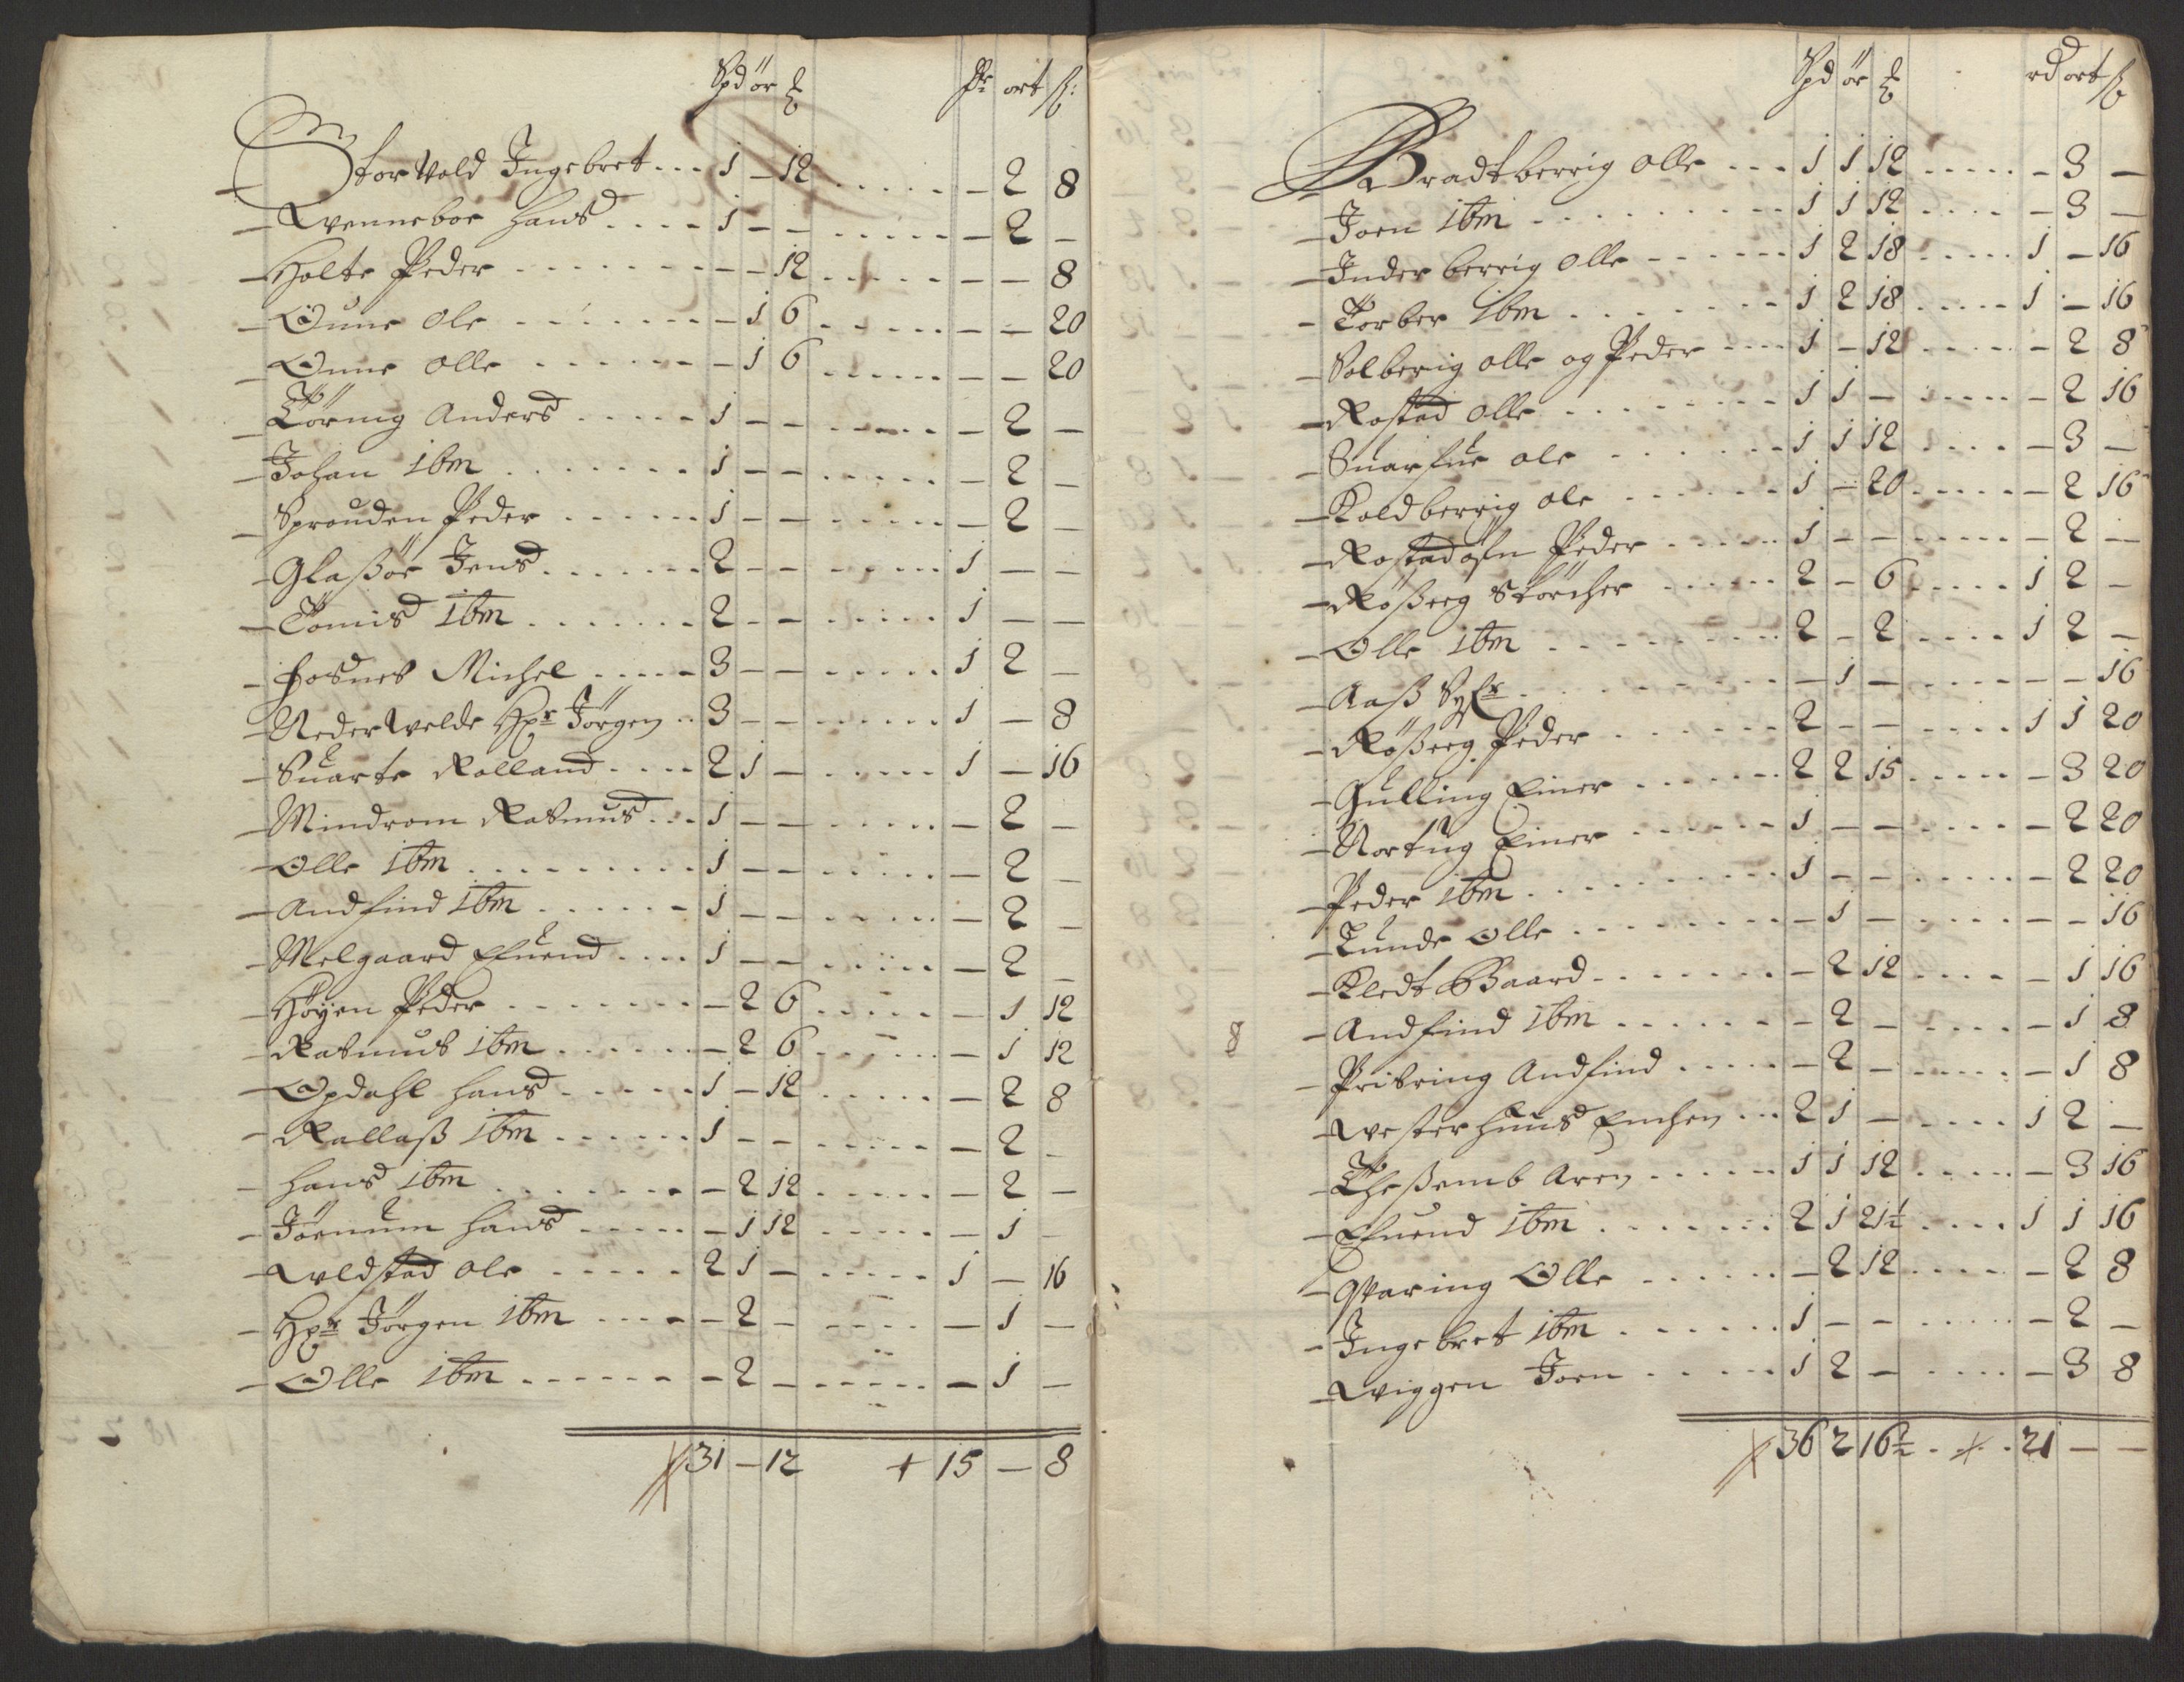 Spd ör ꝉ ort ß:
Storvold Ingebret... 1 – 12 ..... – 2 8
Wenneboe Hans .... 1 – – ..... – 2 –
Holte Peder ....... – – 12 ..... – – 8
Oune Ole ....... – 1 6 ..... – – 20
Oune Olle ....... – 1 6 ..... – – 20
Töring Anders ..... 1 – – ..... – 2 –
Johan ibm ....... 1 – – ..... – 2 –
Sprouden Peder ..... 1 – – ..... – 2 –
Glaßöe Jens ...... 2 – – ..... 1 – –
Tomis ibm ....... 2 – – ..... 1 – –
Hosnes Michel ..... 3 – – ..... 1 2 –
Nederwelde Hr Jörgen .. 3 – – ..... 1 – 8
Suarte Rolland .... 2 1 – ..... 1 – 16
Mindrom Rasmus ... 1 – – ..... – 2 –
Olle ibm ......... 1 – – ..... – 2 –
Andfind ibm ...... 1 – – ..... – 2 –
Melgaard Efuend .... 1 – – ..... – 2 –
Höyen Peder ....... – 2 6 ..... – 1 12
Rasmus ibm ...... – 2 6 ..... – 1 12
Opdahl Hans ..... 1 – 12 ..... – 2 8
Rallaß ibm ...... 1 – – ..... – 2 –
Hans ibm ....... – 2 12 ..... – 2 –
Jörnum Hans ..... – 1 12 ..... – 1 –
Wldstad Ole ..... 2 1 – ..... 1 – 16
Hr Jörgen ibm .... – 2 – ..... – 1 –
Olle ibm ...... – 2 – ..... – 1 –
31 – 12 + 15 – 8
Spd ör ꝉ rd ort ß
Bradtberrig Olle ... 1 1 12 ..... – 3 –
Joen ibm ......... 1 1 12 .... – 3 –
Inderberrig Olle ...... 1 2 18 ..... 1 – 16
Torber ibm ....... 1 2 18 ..... 1 – 16
Solberig Olle og Peder ... 1 – 12 ..... – 2 8
Rostad Olle ........ 1 1 – ..... – 2 16
Suarfue Ole ...... 1 1 12 .... – 3 –
Koldberrig Ole ...... 1 – 20 ..... – 2 16
Rostadöln Peder ..... 1 – – ..... – 2 –
Rößeeg Störcher ..... 2 – 6 ..... 1 2 –
Olle ibm ....... 2 – 2 .... 1 2 –
Aaß ......... – 1 – .... – – 16
Rößeeg Peder ...... 2 – – ..... 1 1 20
Gulling Einer ...... 2 2 15 ..... – 3 20
Nortug Einer ...... 1 – – .... – 2 20
Peder ibm ......... 1 – – ..... – 2 20
Tunde Olle ....... – 1 – .... – – 16
Kledt Baard ....... – 2 12 .... – 1 16
8
Andfind ibm ...... – 2 – .... – 1 8
Pribring Andfind ..... – 2 – ..... – 1 8
Westerhuus Enchen ... 2 1 – .... 1 2 –
Theßemb Aren ..... 1 1 12 ..... – 3 16
Efuend ibm ...... 2 1 21½ .... 1 1 16
Qvaring Olle ...... – 2 12 .... – 2 8
Ingebret ibm ...... 1 – – ..... – 2 –
Wiggen Joen ..... 1 2 – .... – 3 8
36 2 16½ . + . 21 – –